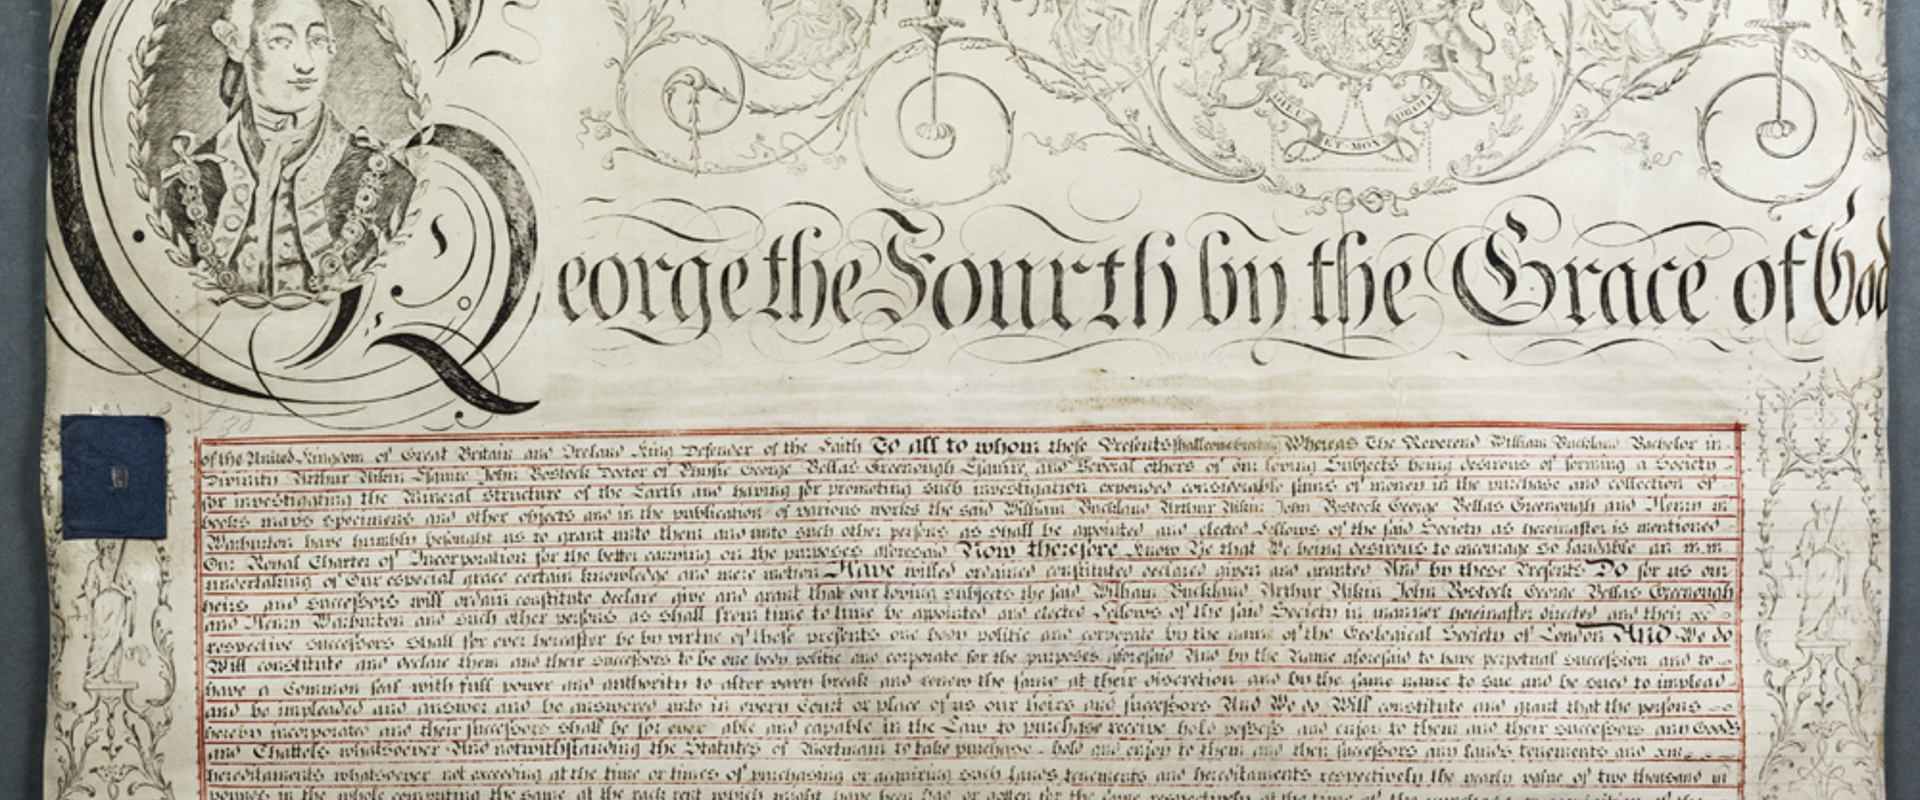 DIEU ET·MON DROIT
George the Fourth by the Grace of God
of the United Kingdom of Great Britain and Ireland King Defender of the Faith To all to whom these Presents shall come Greeting Whereas The Reverend William Buckland Bachelor in
Divinity Arthur Aikin Esquire John Bostock Doctor of Physic George Bellas Greenough Esquire and Several others of our loving Subjects being desirous of forming a Society
for investigating the Mineral Structure of the Earth and having for promoting such investigation expended considerable sums of money in the purchase and collection of
books maps specimens and other objects and in the publication of various works the said William Buckland Arthur Aikin John Bostock George Bellas Greenough and Henry
Warburton have humbly besought us to grant unto them and unto such other persons as shall be appointed and elected Fellows of the said Society as hereinafter is mentioned
Our Royal Charter of Incorporation for the better carrying on the purposes aforesaid Now therefore Know Ye that We being desirous to encourage so laudable an
undertaking of Our especial grace certain knowledge and mere motion Have willed ordained constituted declared given and granted And by these Presents Do for us our
heirs and successors will ordain constitute declare give and grant that our loving subjects the said William Buckland Arthur Aikin John Bostock George Bellas Greenough
and Henry Warburton and such other persons as shall from time to time be appointed and elected Fellows of the said Society in manner hereinafter directed and their
respective successors shall for ever hereafter be by virtue of these presents one body politic and corporate by the name of the Geological Society of London And We do
Will constitute and declare them and their successors to be one body politic and corporate for the purposes aforesaid And by the Name aforesaid to have perpetual succession and to
have a Common seal with full power and authority to alter vary break and renew the same at their discretion and by the same name to Sue and be sued to implead
and be impleaded and answer and be answered unto in every Court or place of us our heirs and successors And We do Will constitute and grant that the persons
hereby incorporated and their successors shall be for ever able and capable in the Law to purchase receive hold possess and enjoy to them and their successors any Goods
and Chattels whatsoever And notwithstanding the Statutes of Mortmain to take purchase hold and enjoy to them and their successors any lands tenements and
hereditaments whatsoever not exceeding at the time or times of purchasing or acquiring such lands tenements and hereditaments respectively the yearly value of two thousand
pounds in the whole computing the same at the rack rent which might have been had or gotten for the same respectively at the time of the purchase or acquisition